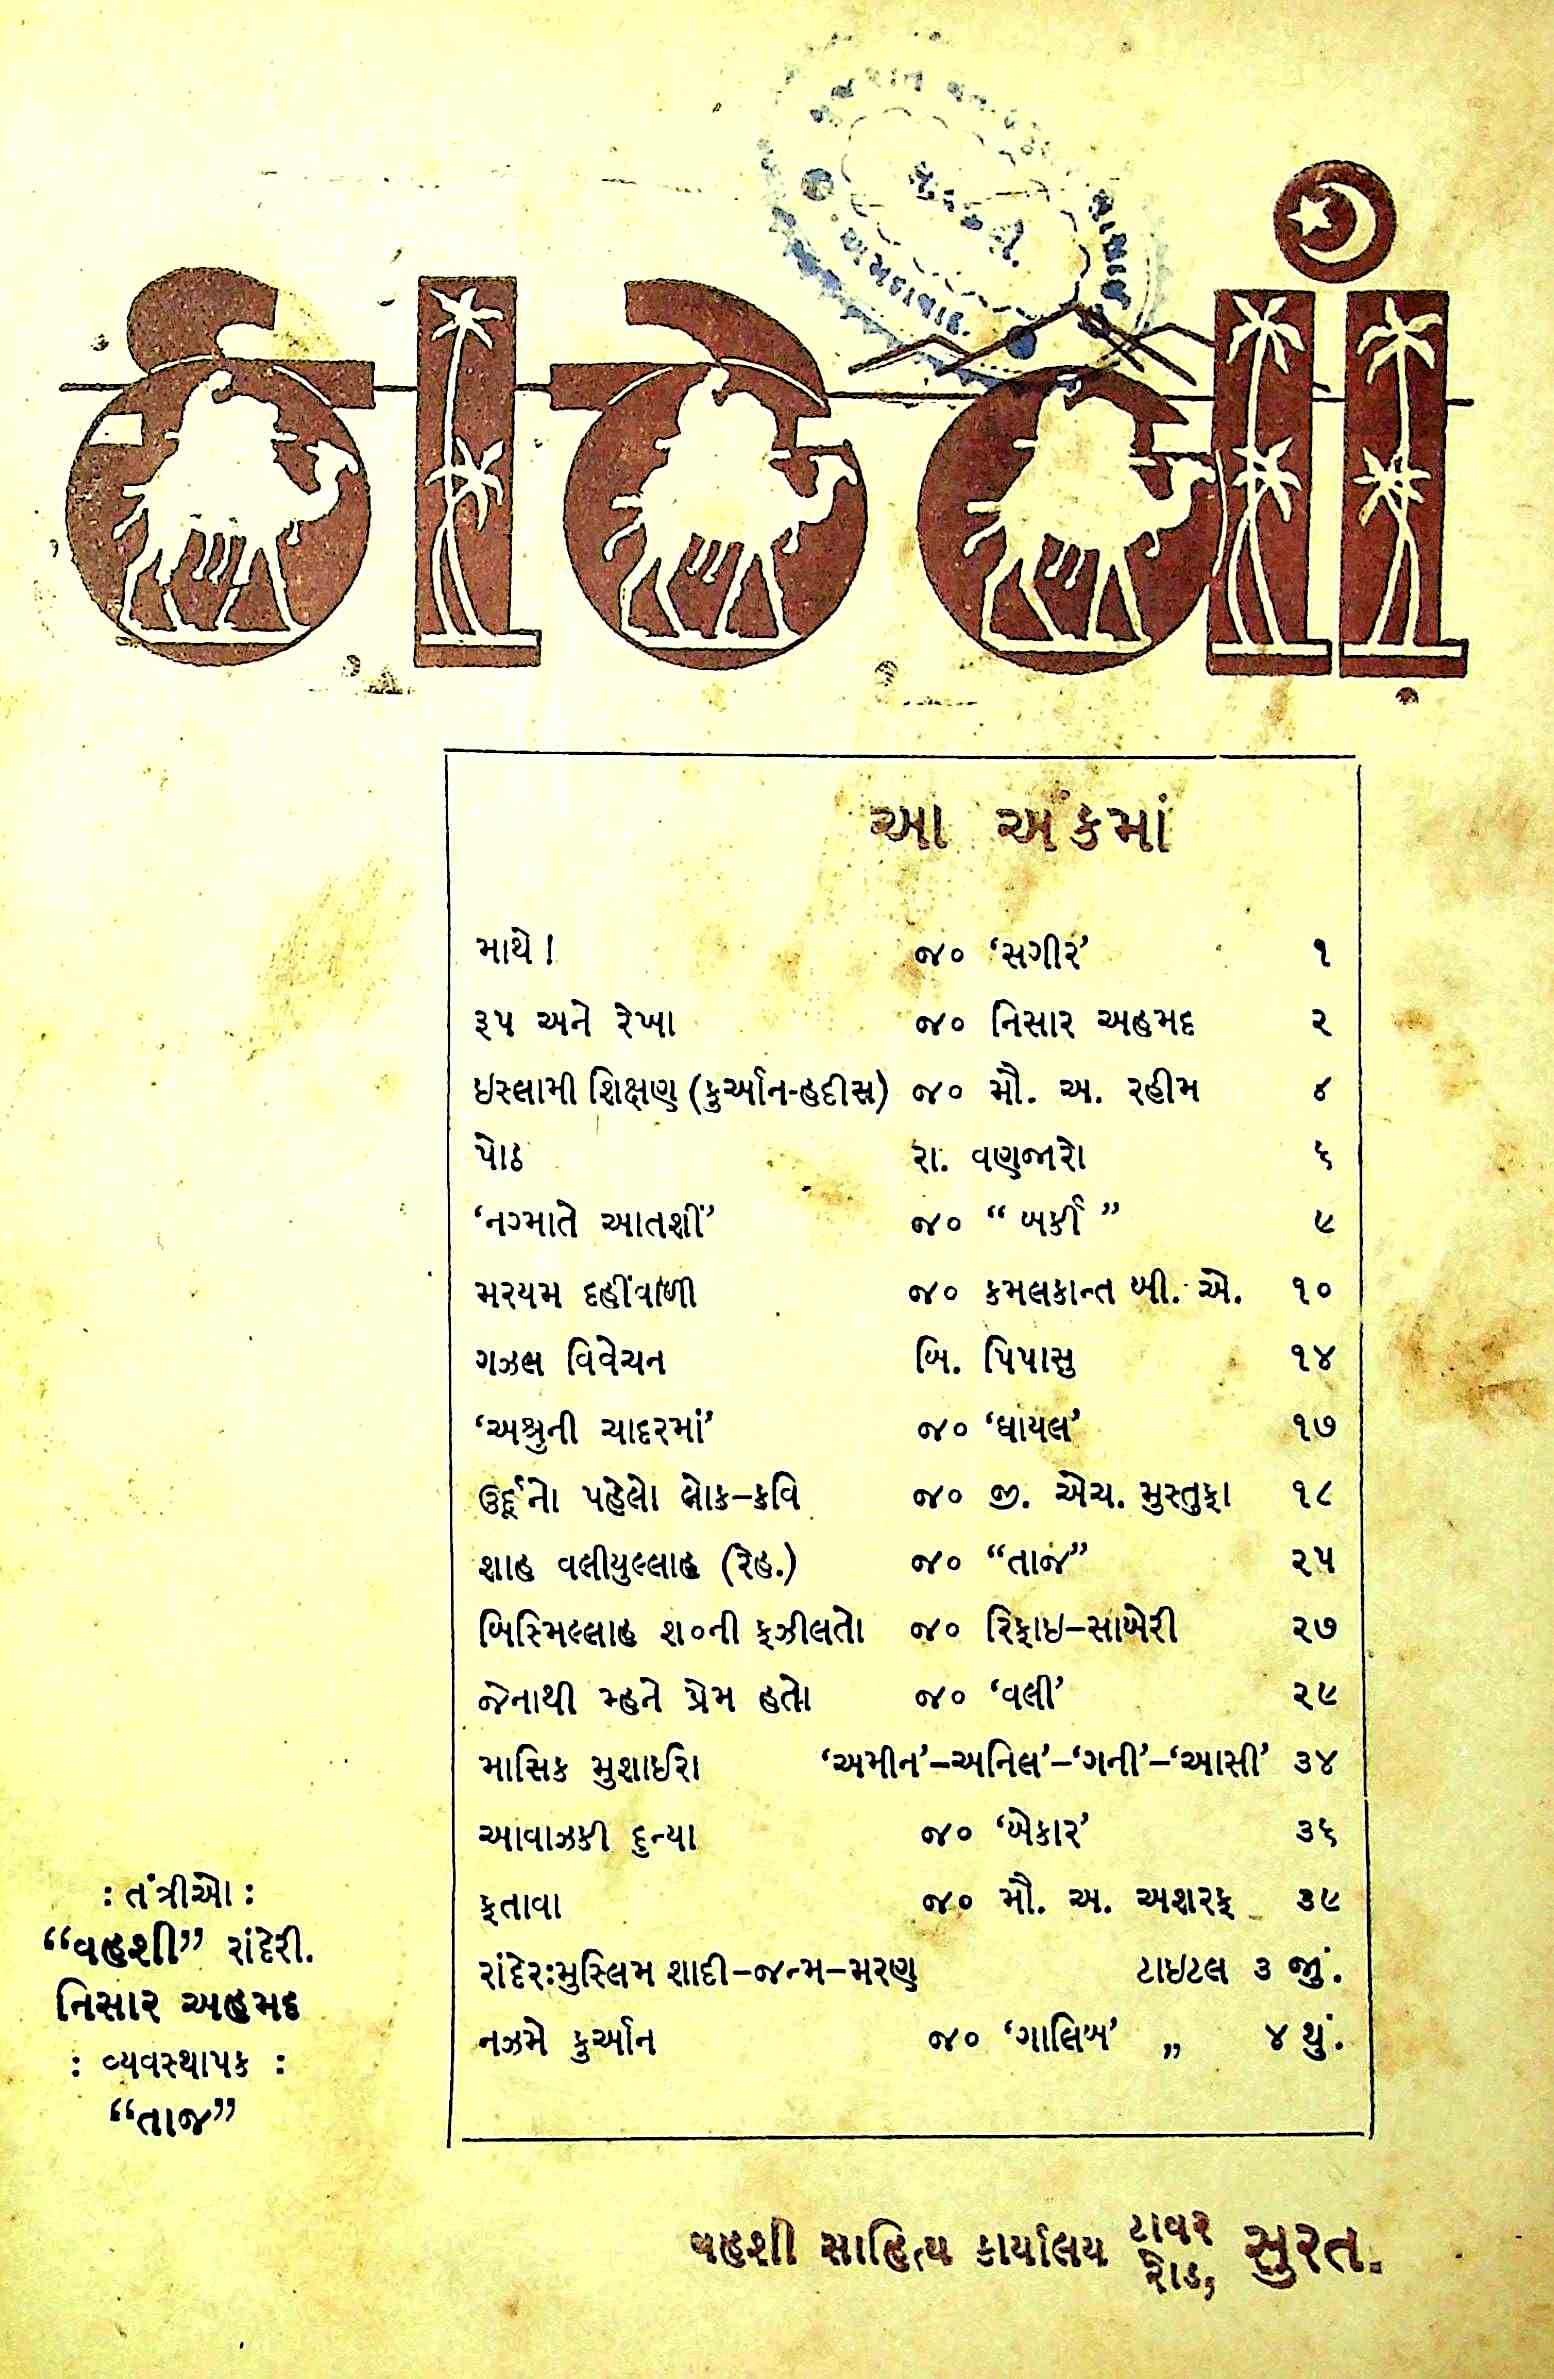 કારવાં
અમદાવાદ.
આ અંકમાં
માથે ! જ૦ ‘સગીર’ ૧
રૂપ અને રેખા જ૦ નિસાર અહમદ ૨
ઇસ્લામી શિક્ષણ (કુર્આન-હદીસ) જ૦ મૌ. અ. રહીમ ૪
પોઠ રા. વણજારો ૬
‘નગ્માતે આતશીં’ જ૦ “ બર્કી ” ૯
મરયમ દહીંવાળી જ૦ કમલકાન્ત બી. એ. ૧૦
ગઝલ વિવેચન બિ. પિપાસુ ૧૪
‘અશ્રુની ચાદરમાં’ જ૦ ‘ઘાયલ’ ૧૭
ઉર્દૂનો પહેલો લોક-કવિ જ૦ જી. એચ. મુસ્તુફા ૧૮
શાહ વલીયુલ્લાહ (રેહ.) જ૦ “તાજ” ૨૫
બિસ્મિલ્લાહ શ૦ની ફઝીલતો જ૦ રિફાઇ-સાબેરી ૨૭
જેનાથી મ્હને પ્રેમ હતો જ૦ ‘વલી’ ૨૯
માસિક મુશાઈરા ‘અમીન’-અનિલ’-‘ગની’-‘આસી’ ૩૪
આવાઝકી દુન્યા જ૦ ‘બેકાર’ ૩૬
ફતાવા જ૦ મૌ. અ. અશરફ ૩૯
રાંદેર:મુસ્લિમ શાદી-જન્મ-મરણ ટાઇટલ ૩ જું.
નઝમે કુર્આન જ૦ ‘ગાલિબ’ ,, ૪ થું.
: તંત્રીઓ :
“વહશી” રાંદેરી.
નિસાર અહમદ
: વ્યવસ્થાપક :
“તાજ”
વહશી સાહિત્ય કાર્યાલય ટાવર રોડ, સુરત.